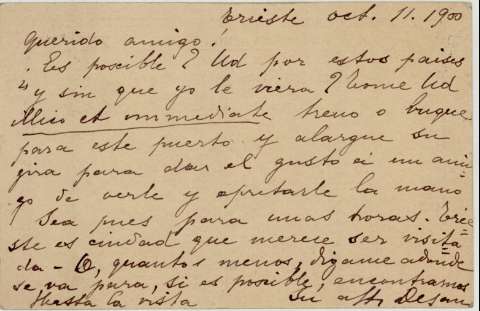 Trieste oct. 11. 1900
Querido amigo!
¿Es poscible? Ud por estos paises
y sin que yo le viera? Tome Ud
illico et immediate treno o buque
para este puerto y alargue su
gira para dar el gusto á un ami-
go de verle y apretarle la mano
Sea pues para unas horas. Trie-
ste es ciudad que merece ser visita-
da - O, quantos menos, digame adonde
se va para, si es poscible, encontrarnos
Hasta la vista su aff.